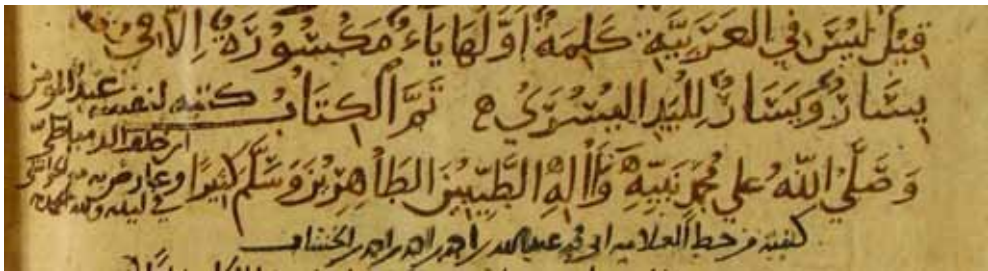 قِيْلَ لَيْسَ في العَرَبِيَّةِ كَلِمَةٌ أَوَّلُهَا يَاءٌ مَكْسُوْرَةٌ اِلاَّ في
يِسَارٌ وَيَسَارٌ لِلْيَدِ اليُسْرَىْ ه تَمَّ الكِتَابُ كتبه لنفسه عبد المومن
ابن خلف الدمياطي
وَصَلَّى اللّهُ عَلَى مُحَمَّدٍ نَبِيِّهِ وَآلِهِ الطَّيِّبِيْنَ الطَاهِرِيْنَ وَسَلَّمَ كَثِيرًا وعارض به
في ليلة ولله الحمد
كتبته من خط العلامه ابي محمد عبد الله بن احمد بن احمد بن احمد الخشاب